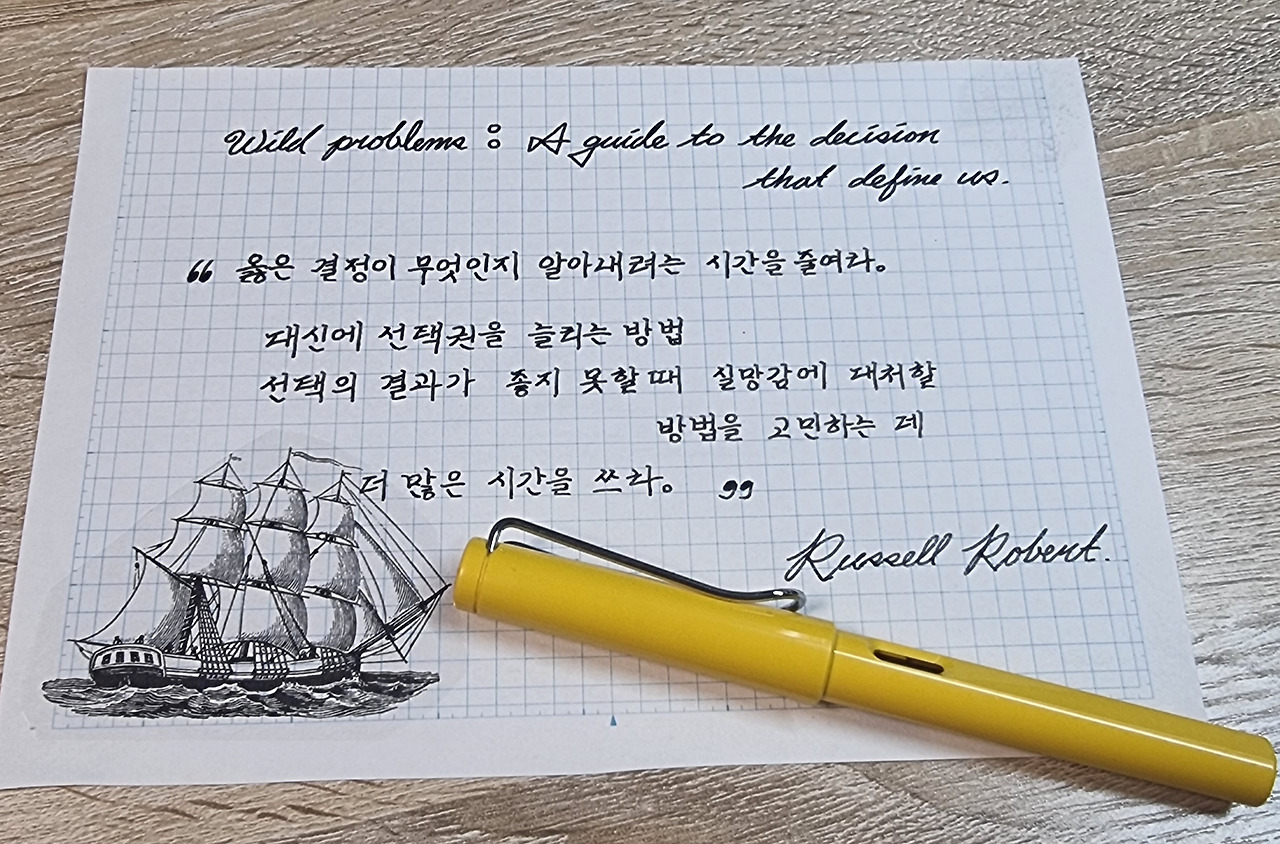 Wild problems : A guide to the decision
that define us.
“ 옳은 결정이 무엇인지 알아내려는 시간을 줄여라.
대신에 선택권을 늘리는 방법
선택의 결과가 좋지 못할 때 실망감에 대처할
방법을 고민하는 데
더 많은 시간을 쓰라. ”
Russell Robert.